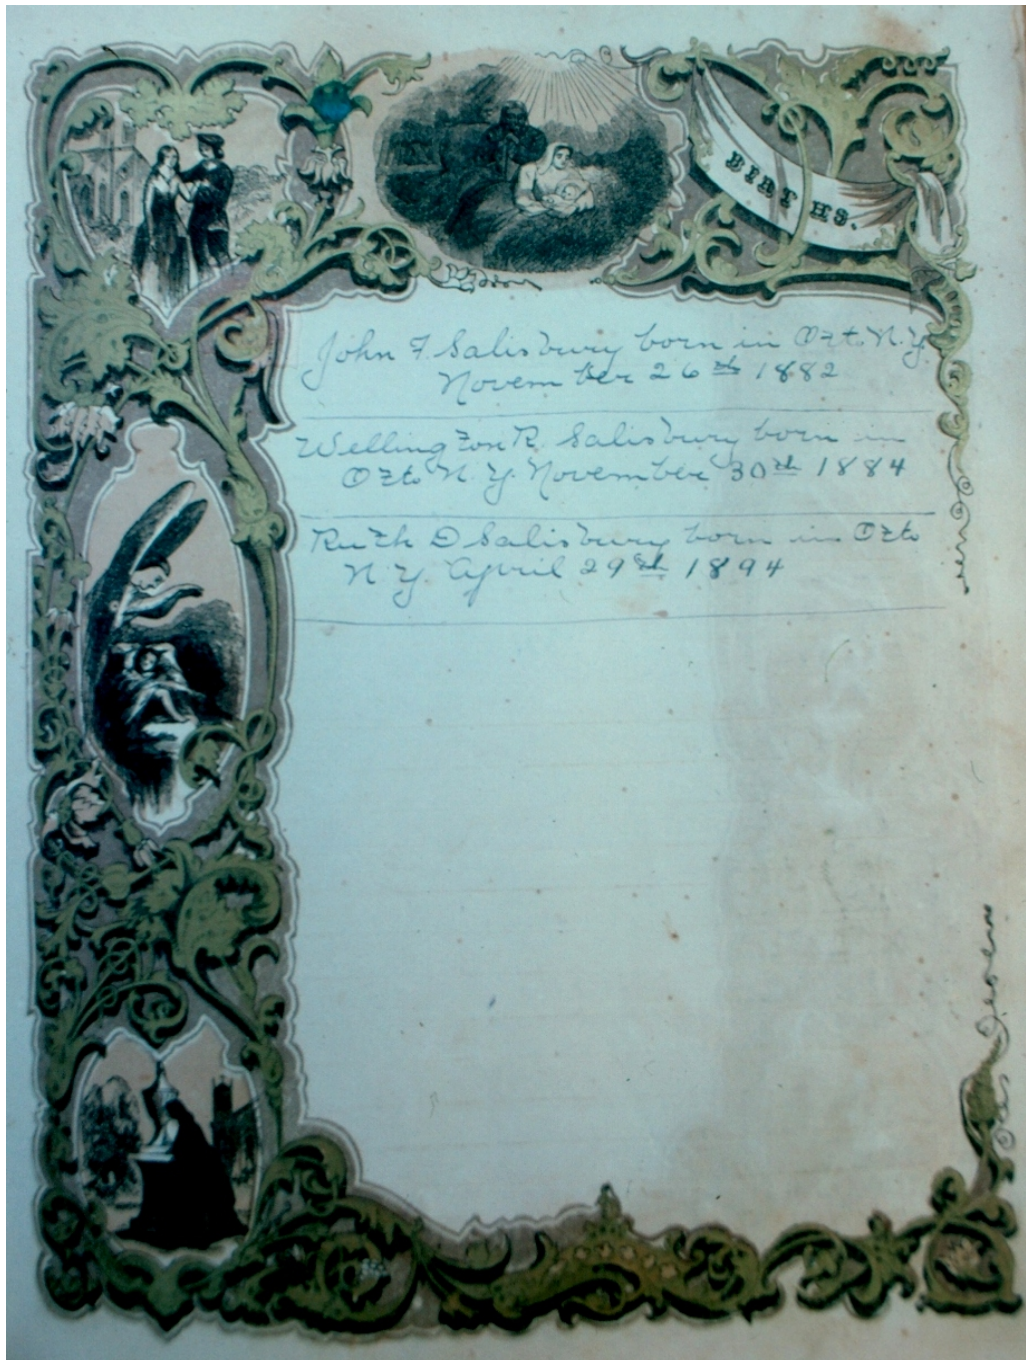 BIRTHS.
John F Salisbury born in Otto N.Y.
November 26th 1882
Wellington R. Salisbury born in
Otto N.Y. November 30th 1884
Ruth D Salisbury born in Otto
N.Y April 29th 1894